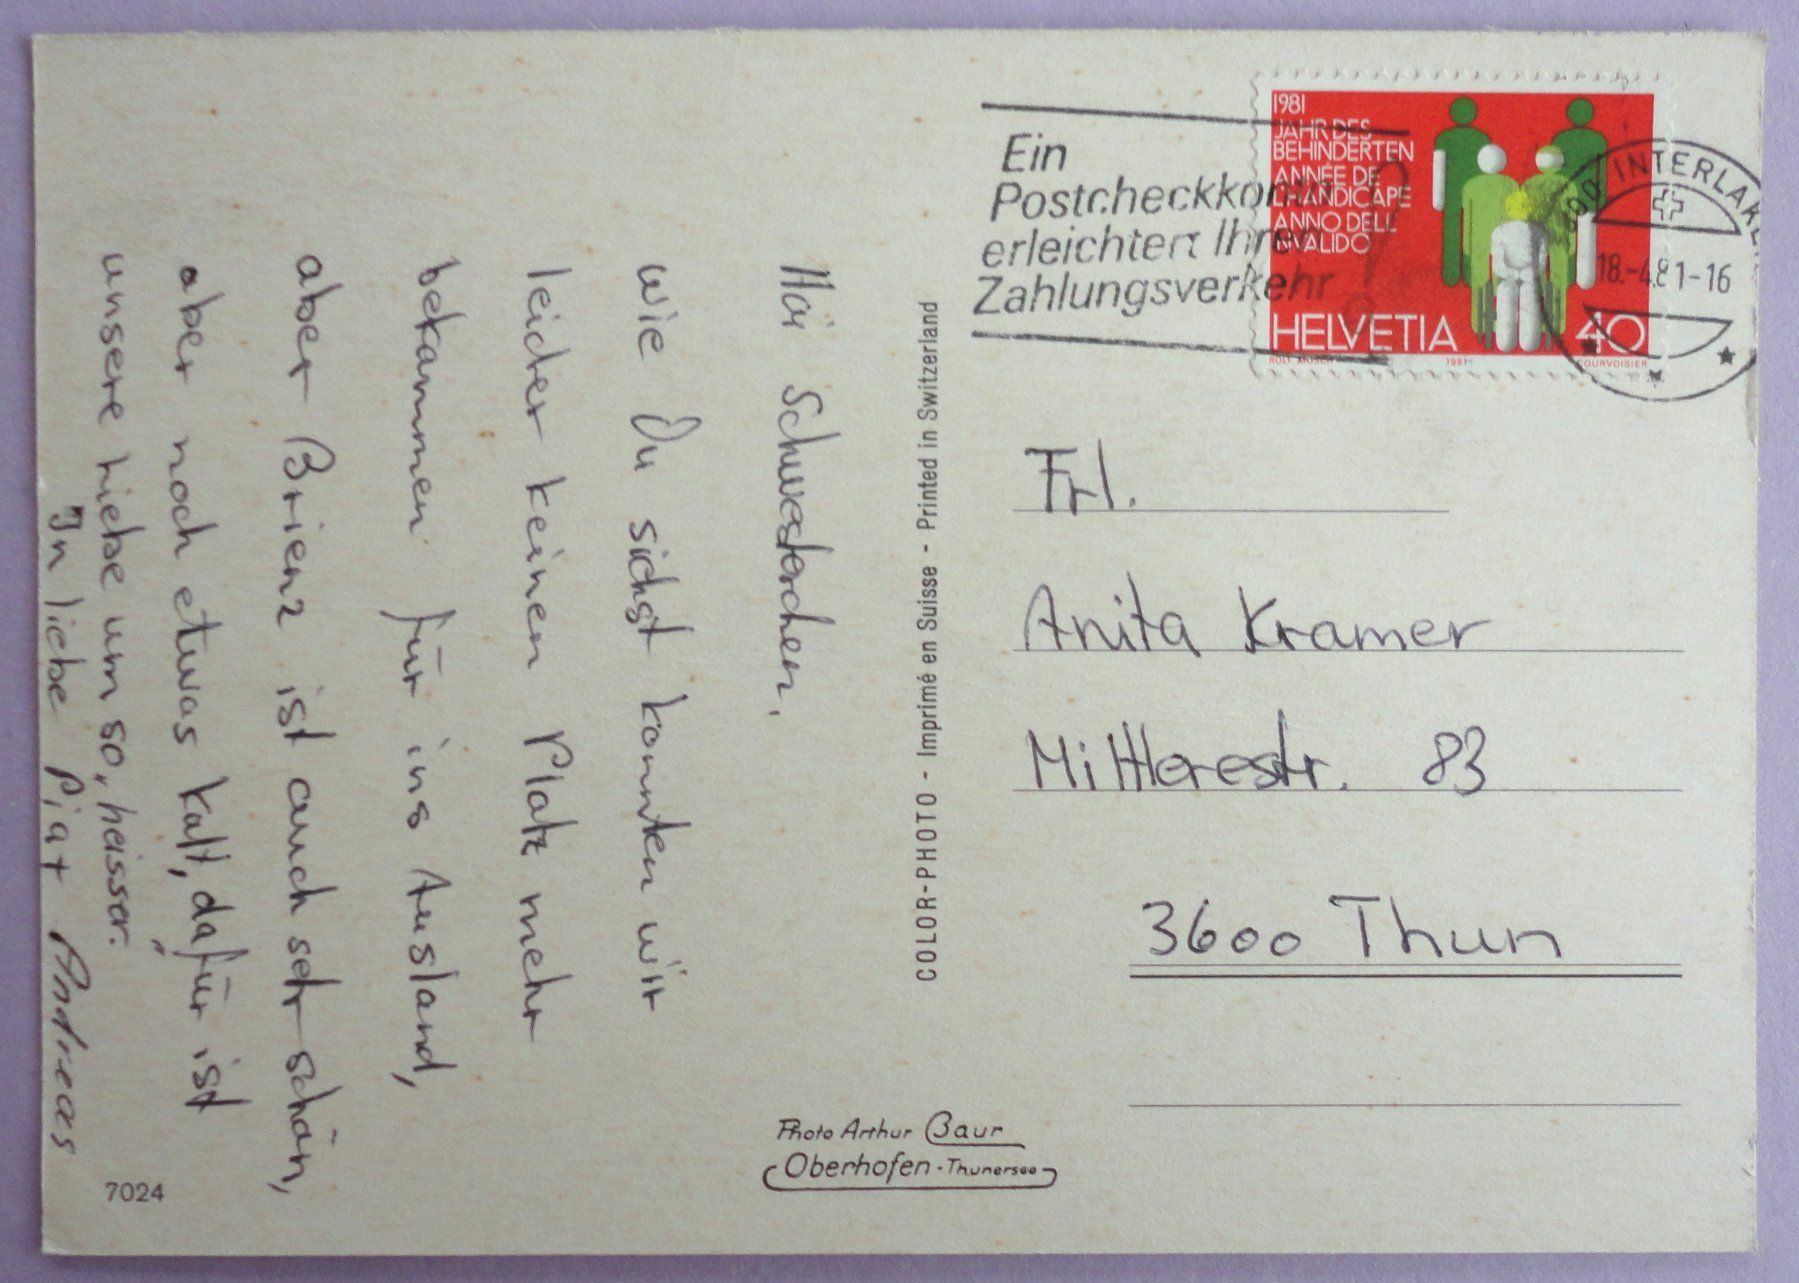 Hoi Schwesterchen,
wie Du siehst konnten wir
leider keinen Platz mehr
bekammen für ins Ausland,
aber Brienz ist auch sehr schön,
aber noch etwas kalt, dafür ist
unsere Liebe um so, heisser.
In liebe Pia + Andreas
7024
COLOR-PHOTO - Imprimé en Suisse - Printed in Switzerland
Photo Arthur Baur
Oberhofen - Thunersee
Ein
Postcheckkonto
erleichtert Ihren
Zahlungsverkehr
1981
JAHR DES
BEHINDERTEN
ANNÉE DE
L'HANDICAPÉ
ANNO DELL'
INVALIDO
HELVETIA 40
1981
COURVOISIER
INTERLAKEN
18.-4.81-16
Frl.
Anita Kramer
Mittlerestr. 83
3600 Thun